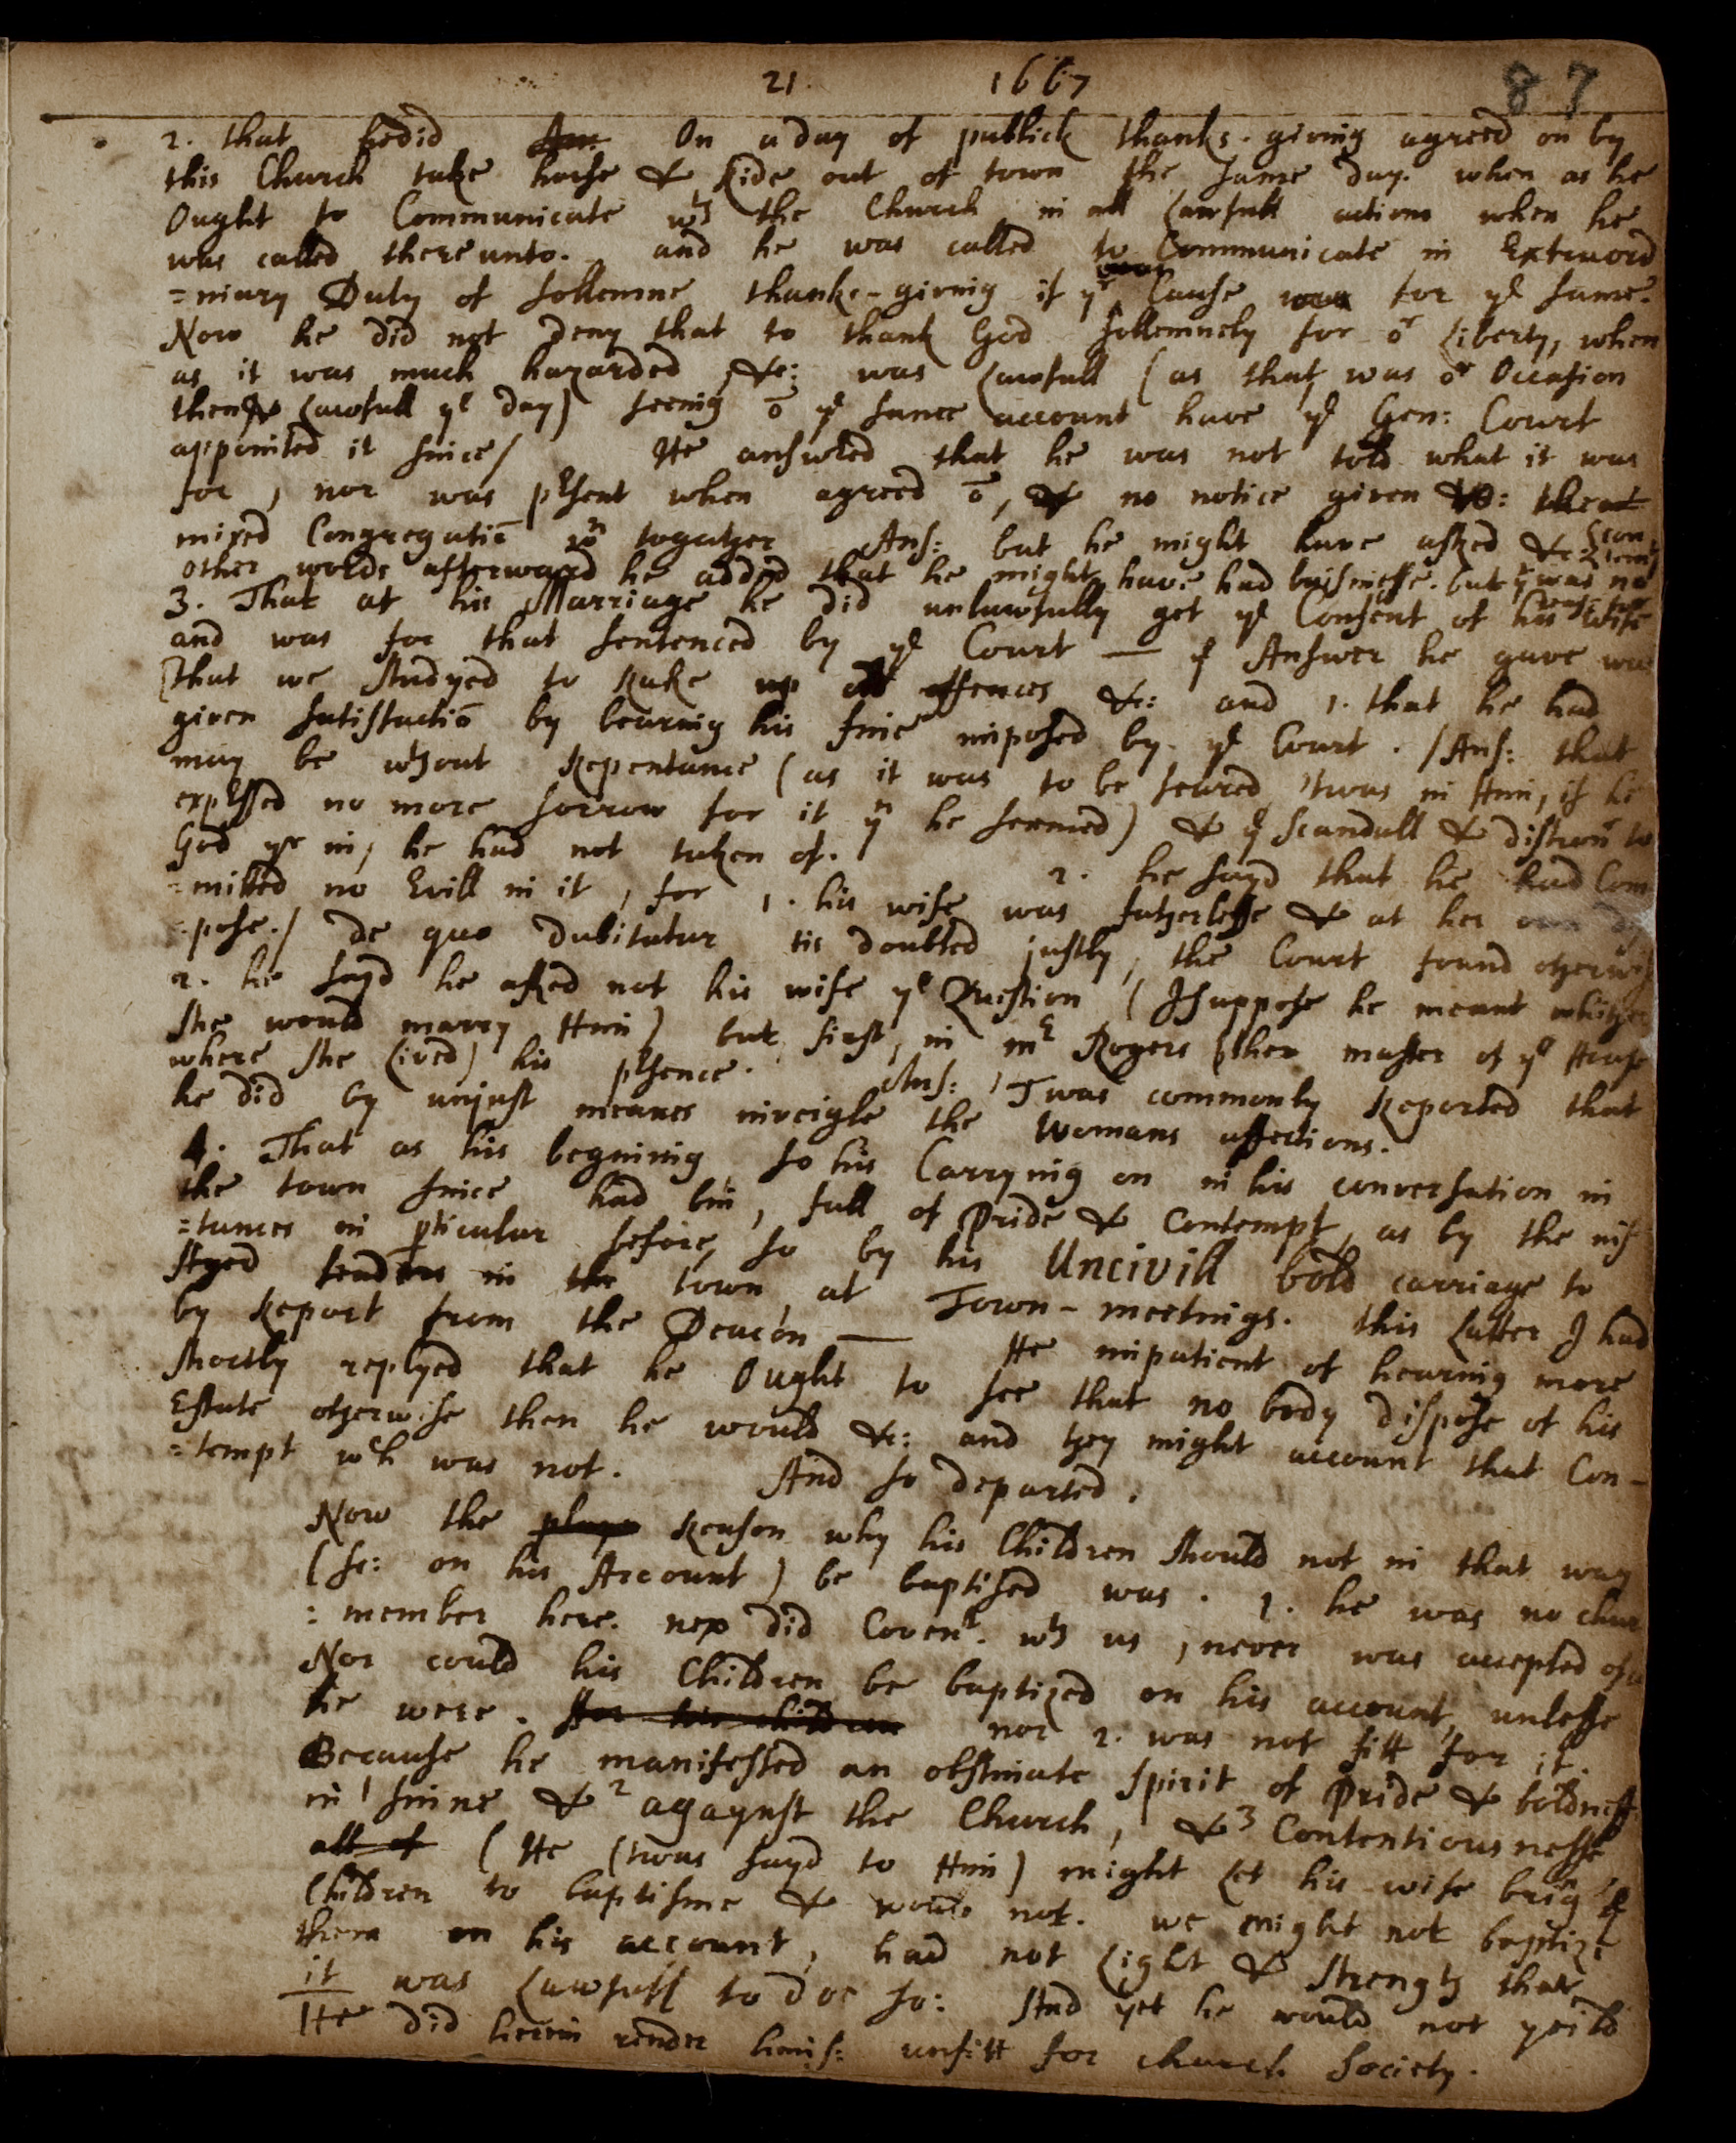 21. 1667 87
2. that he did On a day of publick thanks-giving agreed on by
this Church take horse & Ride out of town the same day. when as he
Ought to Communicate wth the Church in all Lawfull actions when he
was called thereunto. and he was called to Communicate in Extraord
=inary Duty of sollemne thanks-giving if yr Cause was for ye same.
Now he did not deny that to thank God sollemnely for or Liberty, when
as it was much hazarded, &c: was Lawfull (as that was or Occasion
then Lawfull ye day) seeing ō ye same account have ye Gen: Court
appointed it since/ He answred that he was not told what it was
for, nor was psent when agreed ō, & no notice given &c: the
mixed Congregatiō yn togather Ans: but he might have asked &c
other words afterward he added that he might have had buisnesse. but yr was no
3. That at his Marriage he did unlawfully get ye Consent of his wife
and was for that sentenced by ye Court — ye Answer he gave was
[that we studyed to Rake up old offences &c: and 1. that he had
given satisfactiō by bearing his fine imposed by ye Court. /Ans: that
may be wthout Repentance (as it was to be feared 'twas in Him, if he
expssed no more sorrow for it yn he seemed) & ye Scandall & dishonr to
God yr in, he had not taken of. 2. he sayd that he had Com
=mitted no Evill in it, for 1. his wife was fatherlesse & at her own
=pose./ De quo dubitatur tis doubted justly, the Court found otherwise
2. he sayd he asked not his wife ye Question (I suppose he meant whither
she would marry Him) but first, in mr Rogers (then master of ye House
where she lived) his psence. Ans: 'Twas commonly Reported that
he did by unjust meanes inveigle the Womans affections.
4. That as his begining so his Carrying on in his conversation in
the town since had bin, full of Pride & Contempt, as by the ins
=tances in pticular before, so by his Uncivill bold carriage to
in the town at Town-meetings. this Latter I had
by Report from the Deacon — He impatient of hearing more
shortly replyed that he Ought to see that no body dispose of his
Estate otherwise then he would &c: and they might account that Con-
=tempt wch was not. And so departed.
Now the Reason why his Children should not in that way
(sc: on his Account) be baptised was. 1. he was no chur
=member here. nor did Covent. wth us, never was accepted of us
Nor could his Children be baptized on his account, unlesse
he were. Nor his children nor 2. was not fitt for it.
Because he manifested an obstinate spirit of Pride & boldnesse
in 1 sinne & 2 agaynst the Church, & 3 Contentiousnesse
all of (He (twas sayd to Him) might let his wife bring ye
Children to baptisme & would not. we might not baptize
them on his account, had not Light & strength that
it was Lawfull to doe so: And yet he would not yeild
He did herein render hims: unfitt for church society.